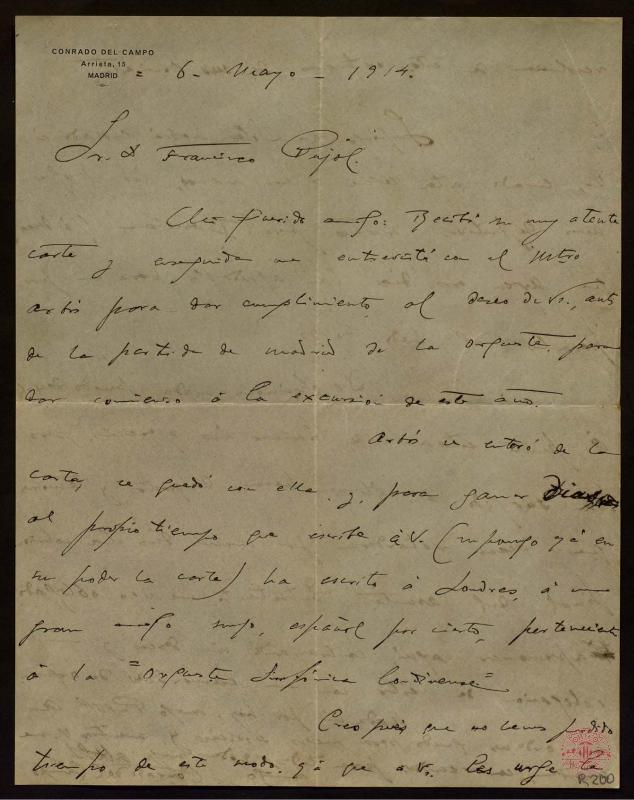 CONRADO DEL CAMPO
Arrieta, 15
MADRID
= 6 - Mayo - 1914.
Sr. D Francisco Pujol.
Mi querido amigo: Recibí su muy atenta
carta y enseguida me entrevisté con el Mtro
Arbós para dar cumplimiento al deseo de Vs., antes
de la partida de Madrid de la orquesta, para
dar comienzo á la excursión de este año.
Arbós se enteró de la
carta, se quedó con ella y, para ganar Dias
al propio tiempo que escribe á V. (supongo yá en
su poder la carta) ha escrito á Londres, á un
gran amigo suyo, español por cierto, perteneciente
á la "Orquesta Sinfónica Londinense"
Creo pués que no hemos perdido
tiempo de este modo, yá que a Vs. les urge la
R. 200